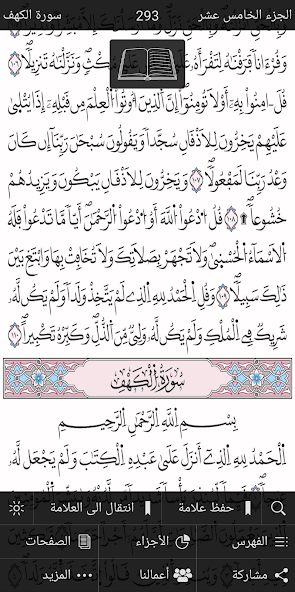 الجزء الخامس عشر 293 سورة الكهف
وَقُرْءَاناً فَرَقْنَٰهُ لِتَقْرَأَهُۥ مُكْثٍ وَنَزَّلْنَٰهُ تَنزِيلاً
قُلَ اٰمِنُواْ بِهِۦٓ أَوْ لَا تُومِنُوٓاْ إِنَّ اَ۬لذِينَ أُوتُواْ اُ۬لْعِلْمَ مِن قَبْلِهِۦٓ إِذَا يُتْلَىٰ
عَلَيْهِمْ يَخِرُّونَ لِلَاذْقَانِ سُجَّداً وَيَقُولُونَ سُبْحَٰنَ رَبِّنَآ إِن كَانَ
وَعْدُ رَبِّنَا لَمَفْعُولاً وَيَخِرُّونَ لِلَاذْقَانِ يَبْكُونَ وَيَزِيدُهُمْ
خُشُوعاً ۩ قُلُ اُ۟دْعُواْ اُ۬للَّهَ أَوُ اُ۟دْعُواْ اُ۬لرَّحْمَٰنَ أَيّاً مَّا تَدْعُواْ فَلَهُ
اُ۬لَاسْمَآءُ اُ۬لْحُسْنَىٰ وَلَا تَجْهَرْ بِصَلَاتِكَ وَلَا تُخَافِتْ بِهَا وَابْتَغِ بَيْنَ
ذَٰلِكَ سَبِيلاً وَقُلِ اِ۬لْحَمْدُ لِلهِ اِ۬لذِے لَمْ يَتَّخِذْ وَلَداً وَلَمْ يَكُن لَّهُۥ
شَرِيكٌ فِے اِ۬لْمُلْكِ وَلَمْ يَكُن لَّهُۥ وَلِيٌّ مِّنَ اَ۬لذُّلِّ وَكَبِّرْهُ تَكْبِيراً
سُورَةُ الْكَهْفِ
بِسْمِ اِ۬للَّهِ اِ۬لرَّحْمَٰنِ اِ۬لرَّحِيمِ
اَ۬لْحَمْدُ لِلهِ اِ۬لذِےٓ أَنزَلَ عَلَىٰ عَبْدِهِ اِ۬لْكِتَٰبَ وَلَمْ يَجْعَل لَّهُۥ
حفظ علامة انتقال الى العلامة
الفهرس الأجزاء الصفحات
مشاركة أعمالنا المزيد